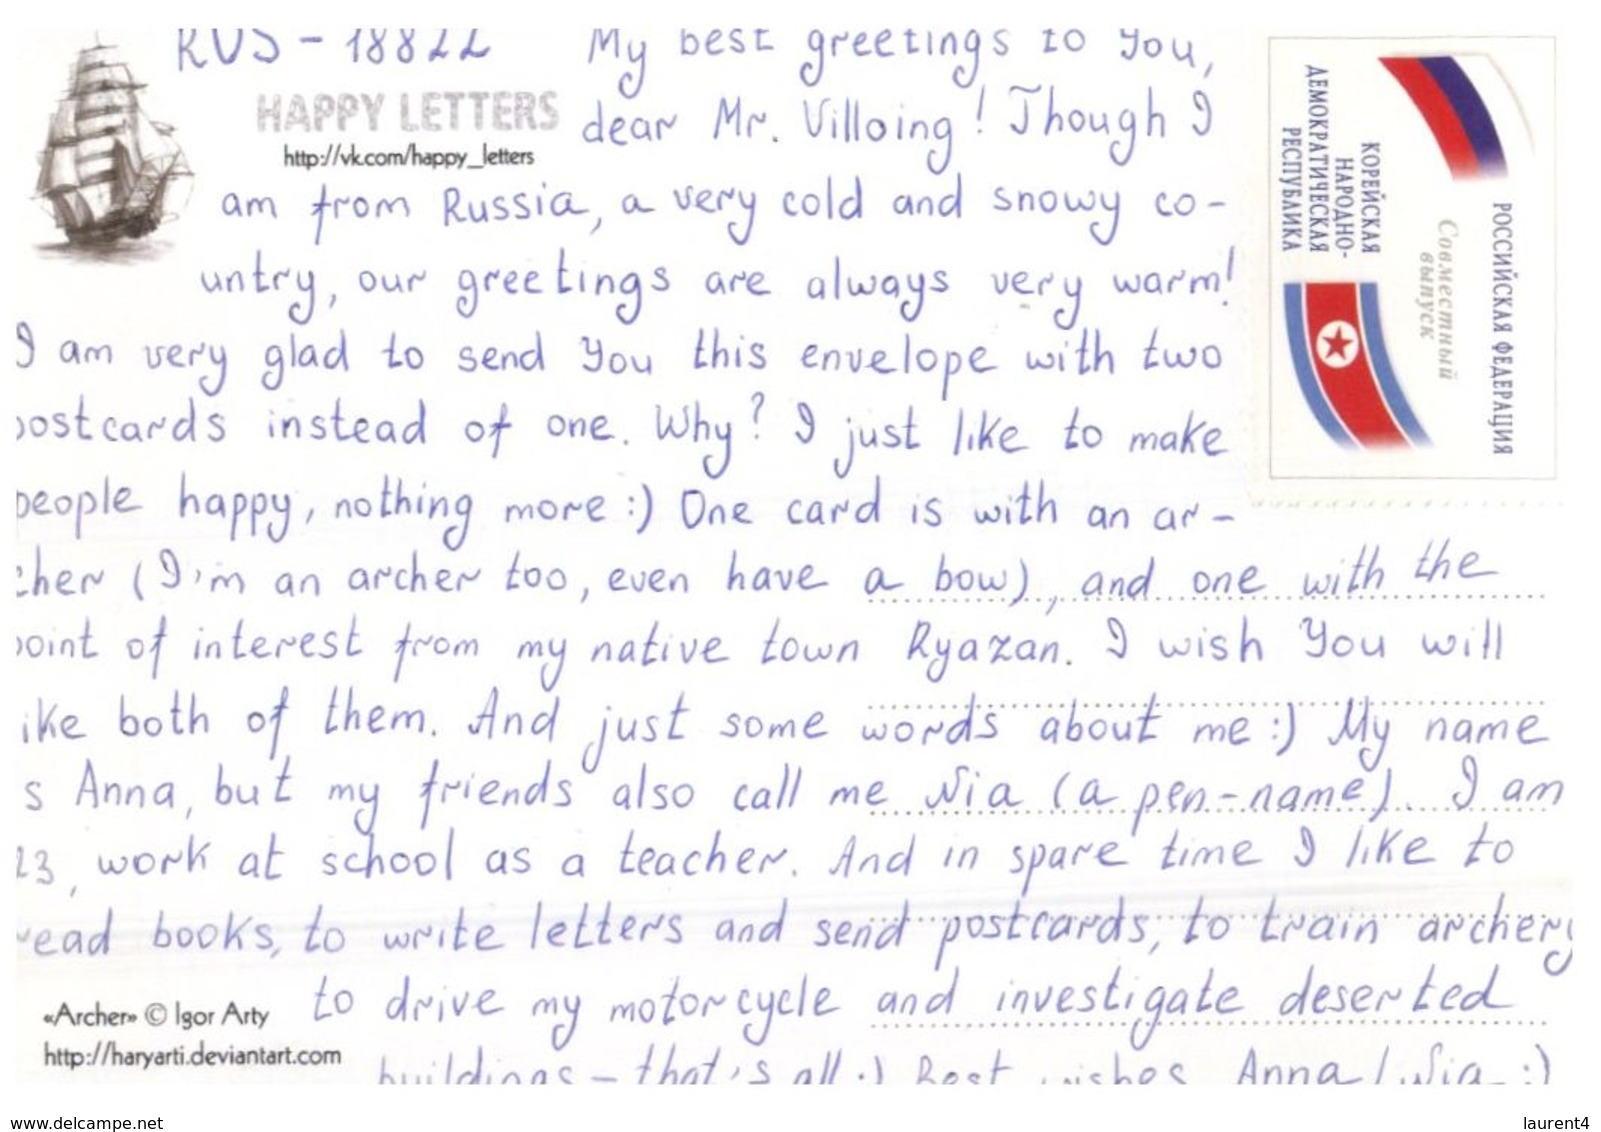 RUS - 18822
HAPPY LETTERS
http://vk.com/happy_letters
My best greetings to You,
dear Mr. Villoing! Though I
am from Russia, a very cold and snowy co-
untry, our greetings are always very warm!
I am very glad to send You this envelope with two
postcards instead of one. Why? I just like to make
people happy, nothing more :) One card is with an ar-
cher (I'm an archer too, even have a bow), and one with the
point of interest from my native town Ryazan. I wish You will
like both of them. And just some words about me :) My name
is Anna, but my friends also call me Nia (a pen-name). I am
23, work at school as a teacher. And in spare time I like to
read books, to write letters and send postcards, to train archery
to drive my motorcycle and investigate deserted
buildings - that's all :) Best wishes Anna / Nia :)
«Archer» © Igor Arty
http://haryarti.deviantart.com
РОССИЙСКАЯ ФЕДЕРАЦИЯ
Совместный
выпуск
КОРЕЙСКАЯ
НАРОДНО-
ДЕМОКРАТИЧЕСКАЯ
РЕСПУБЛИКА
www.delcampe.net
laurent4